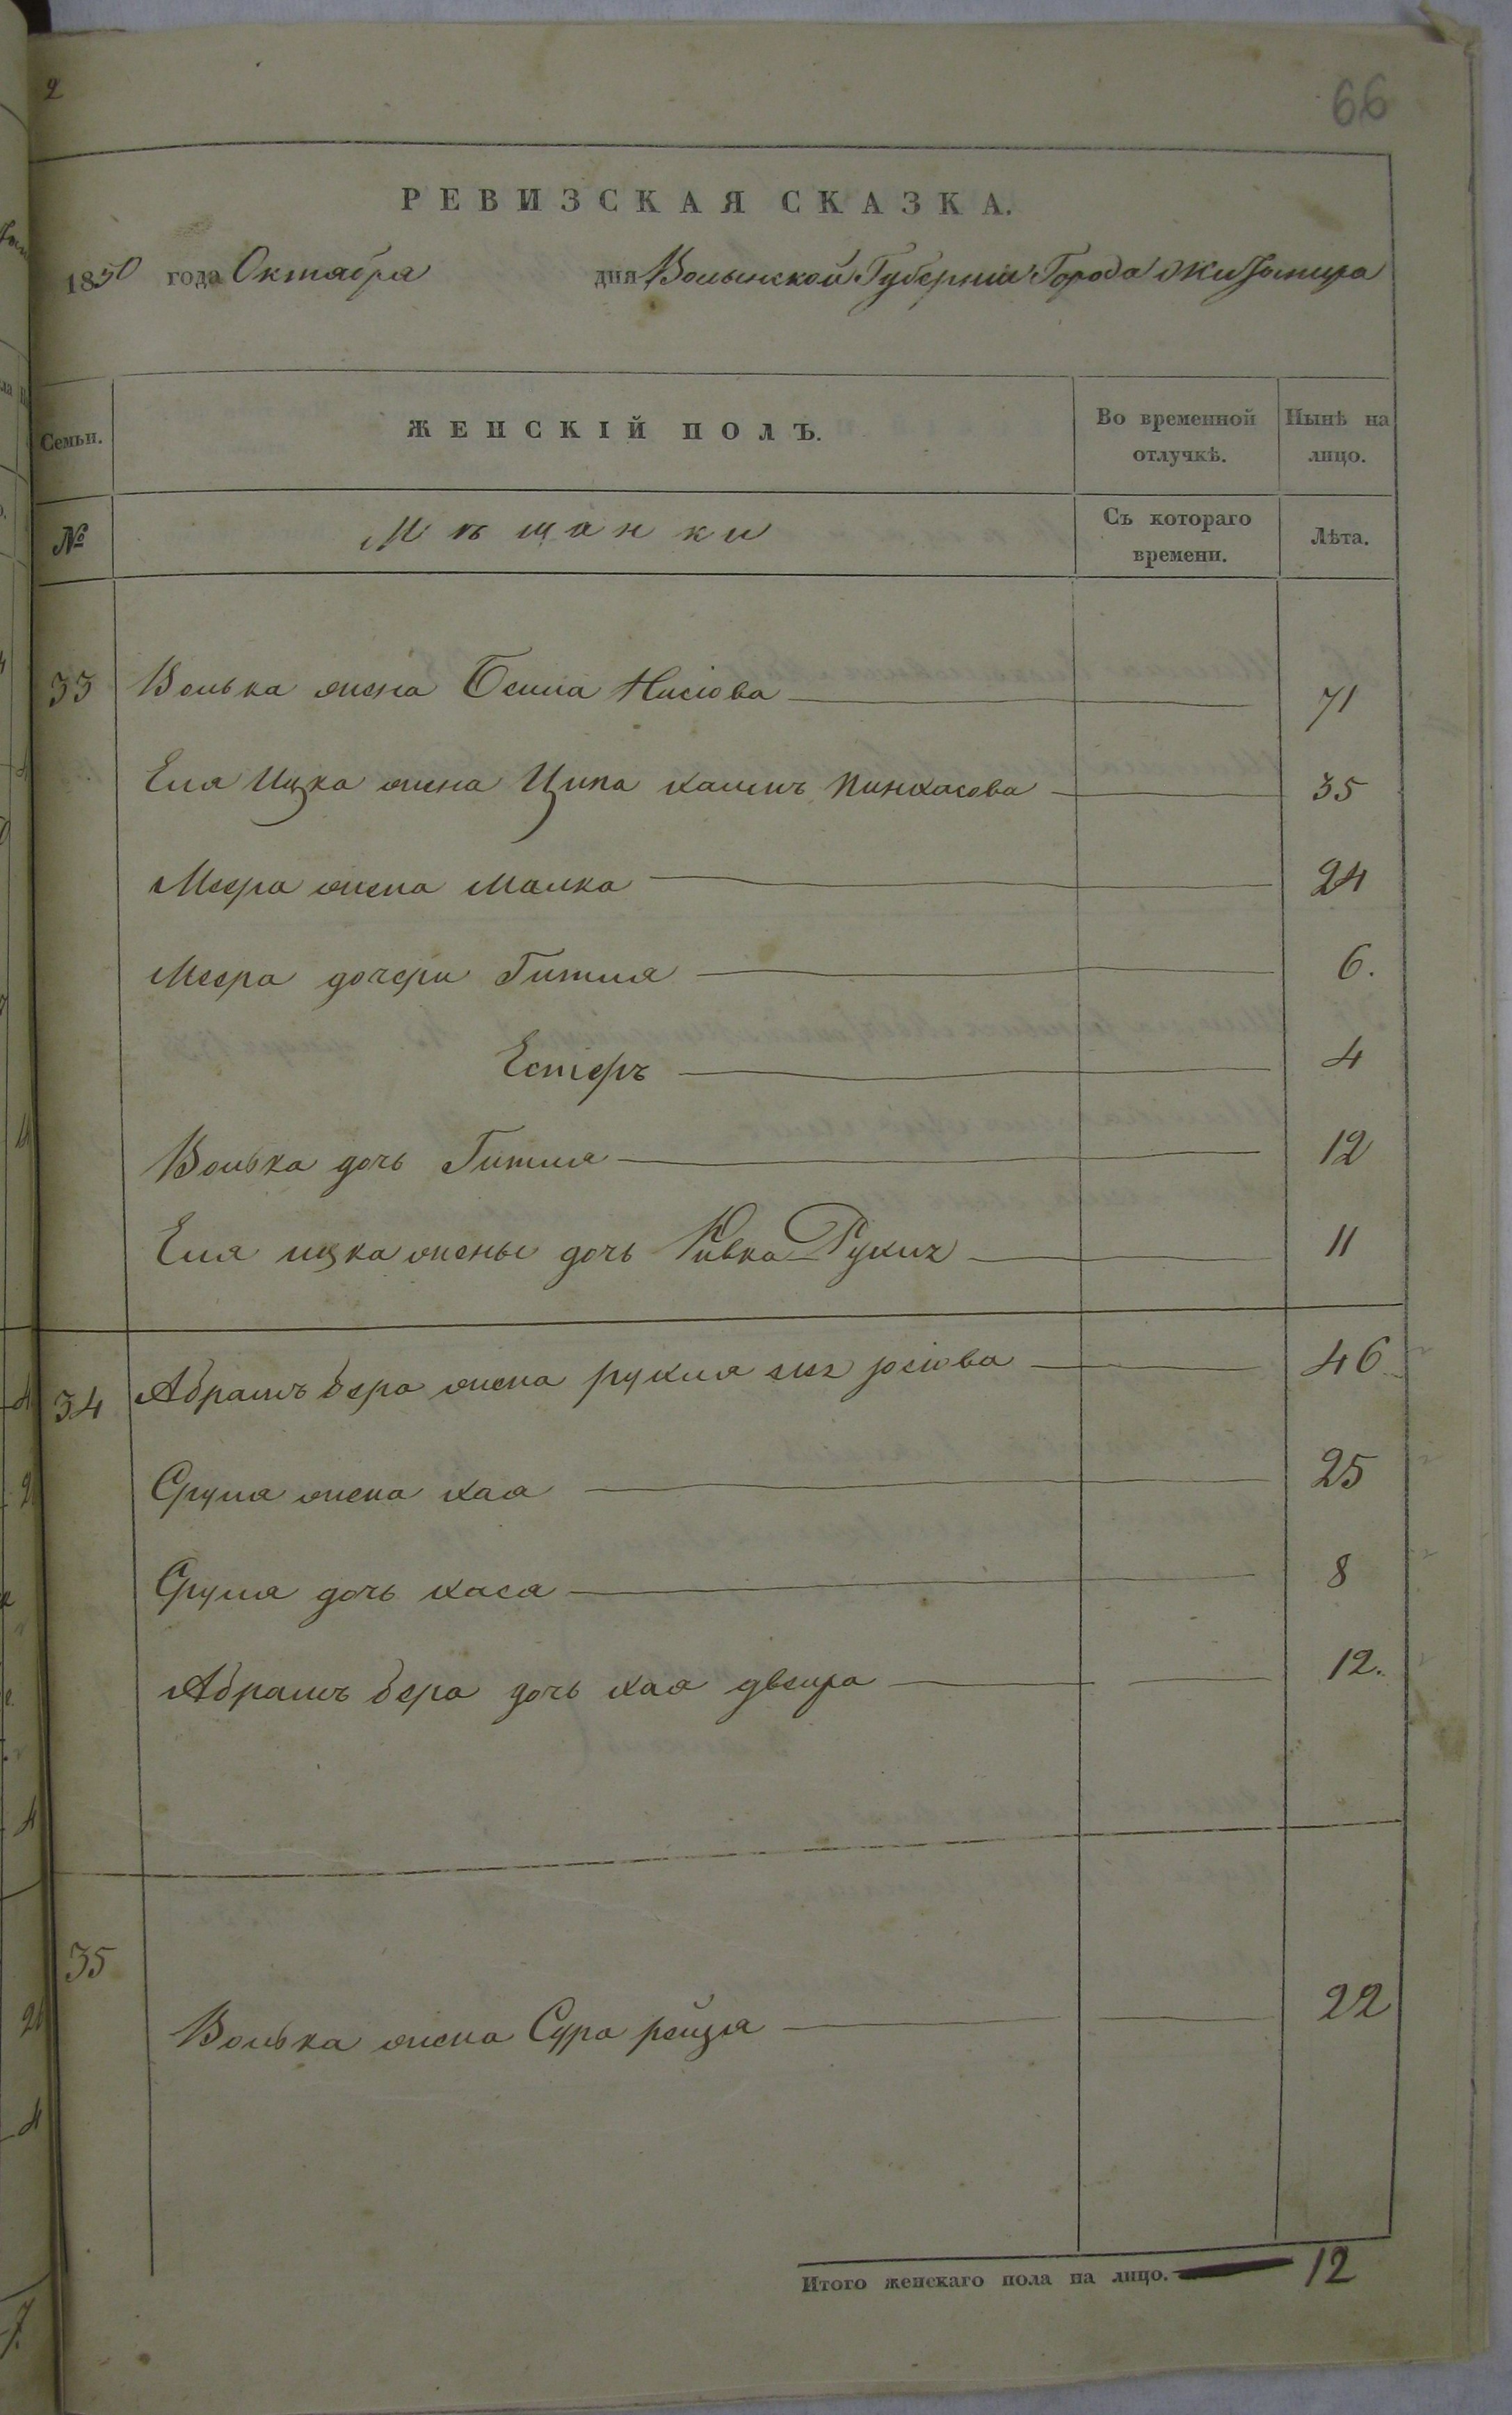 2
66
РЕВИЗСКАЯ СКАЗКА.
1850 года Октября дня Волынской Губерніи Города Житомира
Семьи. ЖЕНСКІЙ ПОЛЪ. Во временной отлучкѣ. Нынѣ на лицо.
№ Мѣщанки Съ котораго времени. Лѣта.
33 Волька жена Бейла Нисіова 71
Еля Ицка жена Ципа Пинхасова 35
Меера жена Малка 24
Меера дочери Гитля 6.
Естеръ 4
Волька дочь Гитля 12
Еля ицка жены дочь Ривка 11
34 Абрамъ бера жена рухля іосіова 46
Сруля жена хая 25
Сруля дочь хася 8
Абрамъ бера дочь хая двейра 12.
35
Волька жена Сура рейзя 22
Итого женскаго пола на лицо. 12